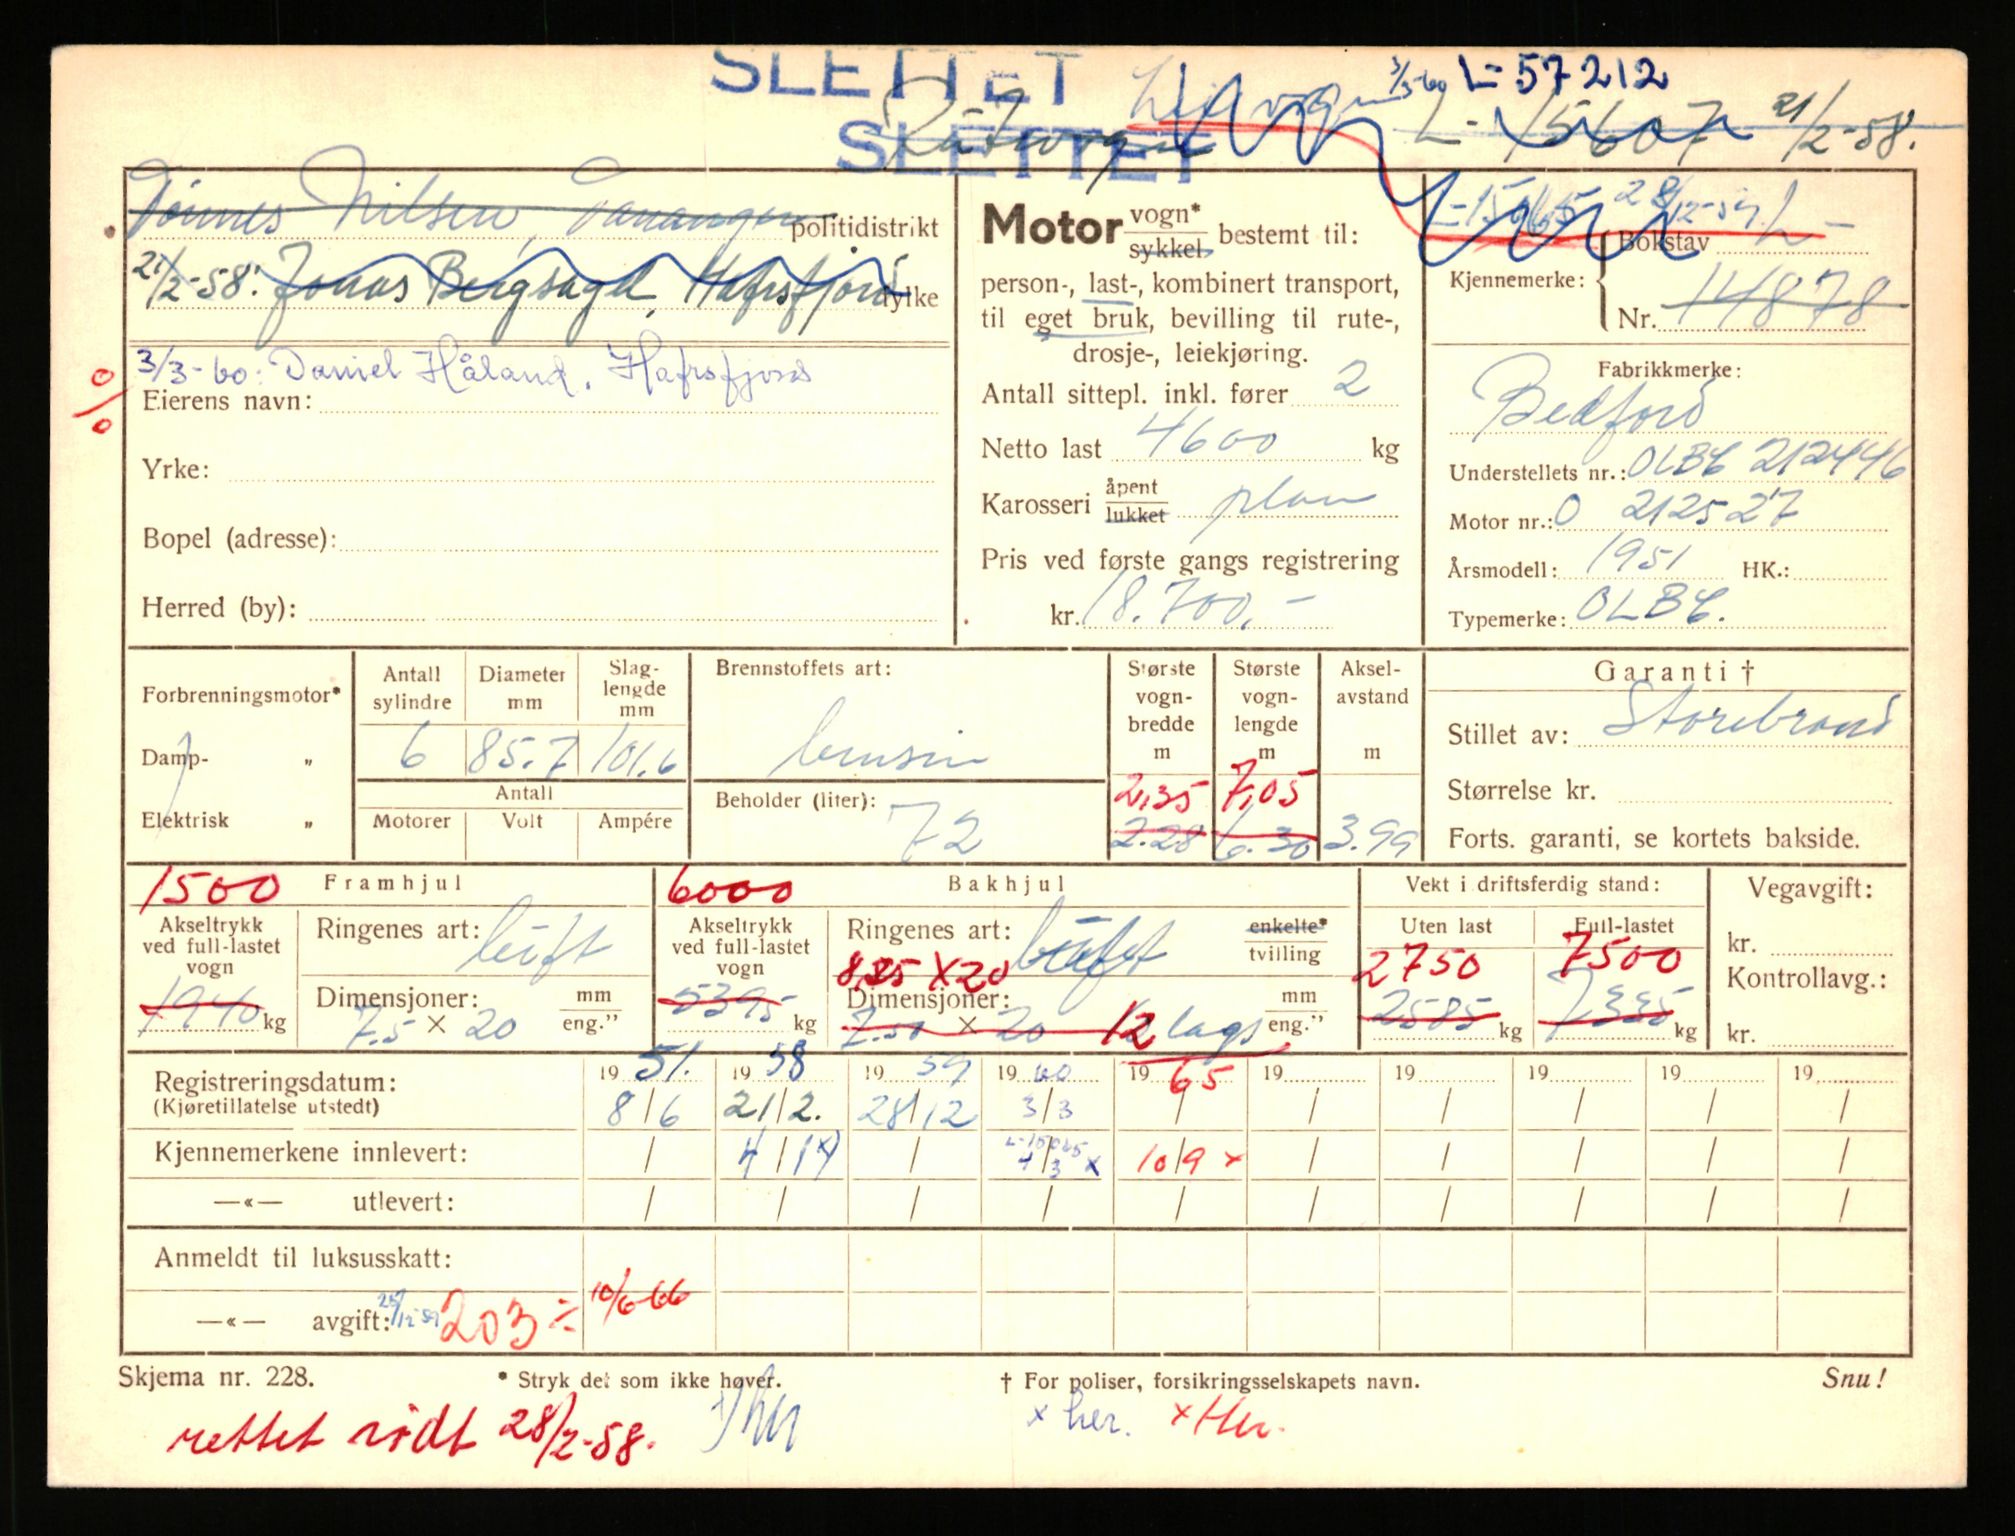 SLETTET
SLETTET
3/3-60 L-57212
L-15607 21/2-58.
Tønnes Nilsen, Tananger
politidistrikt
21/2-58: Jonas Bergsagel, Hafrsfjord
fylke
3/3-60: Daniel Håland, Hafrsfjord
Eierens navn:
Yrke:
Bopel (adresse):
Herred (by):
Motor vogn* sykkel bestemt til:
person-, last-, kombinert transport,
til eget bruk, bevilling til rute-,
drosje-, leiekjøring.
Antall sittepl. inkl. fører 2
Netto last 4600 kg
Karosseri åpent lukket plan
Pris ved første gangs registrering
kr. 18.700,-
L-15065 28/12-59.
Kjennemerke: Bokstav L-
Nr. 14878
Fabrikkmerke:
Bedford
Understellets nr.: OLBC 212446
Motor nr.: O 212527
Årsmodell: 1951 HK.:
Typemerke: OLBC.
Forbrenningsmotor*
Damp- „
Elektrisk „
Antall sylindre 6
Diameter mm 85.7
Slag-lengde mm 101.6
Antall
Motorer Volt Ampére
Brennstoffets art:
bensin
Beholder (liter): 72
Største vogn-bredde m 2,35 2.28
Største vogn-lengde m 7,05 6.30
Aksel-avstand m 3.99
Garanti †
Stillet av: Storebrand
Størrelse kr.
Forts. garanti, se kortets bakside.
1500 Framhjul
Akseltrykk ved full-lastet vogn
1940 kg
Ringenes art: luft
Dimensjoner: mm
7.5 × 20 eng."
6000 Bakhjul
Akseltrykk ved full-lastet vogn
5395 kg
Ringenes art: luft enkelte* tvilling
8,25 X 20
Dimensjoner: mm
7.50 × 20 12 lags eng."
Vekt i driftsferdig stand:
Uten last Full-lastet
2750 7500
2585 kg 7335 kg
Vegavgift:
kr.
Kontrollavg.:
kr.
Registreringsdatum: 19 51. 19 58 19 59 19 60 19 65 19 19 19 19 19
(Kjøretillatelse utstedt) 8/6 21/2. 28/12 3/3 / / / / / /
Kjennemerkene innlevert: / 4/14 / L-15065 4/3 x 10/9 x / / / / /
—«— utlevert: / / / / / / / / / /
Anmeldt til luksusskatt:
—«— avgift: 203 ÷ 10/6-66
Skjema nr. 228. * Stryk det som ikke høver. † For poliser, forsikringsselskapets navn. Snu!
rettet rødt 28/2-58. x her. x Her.